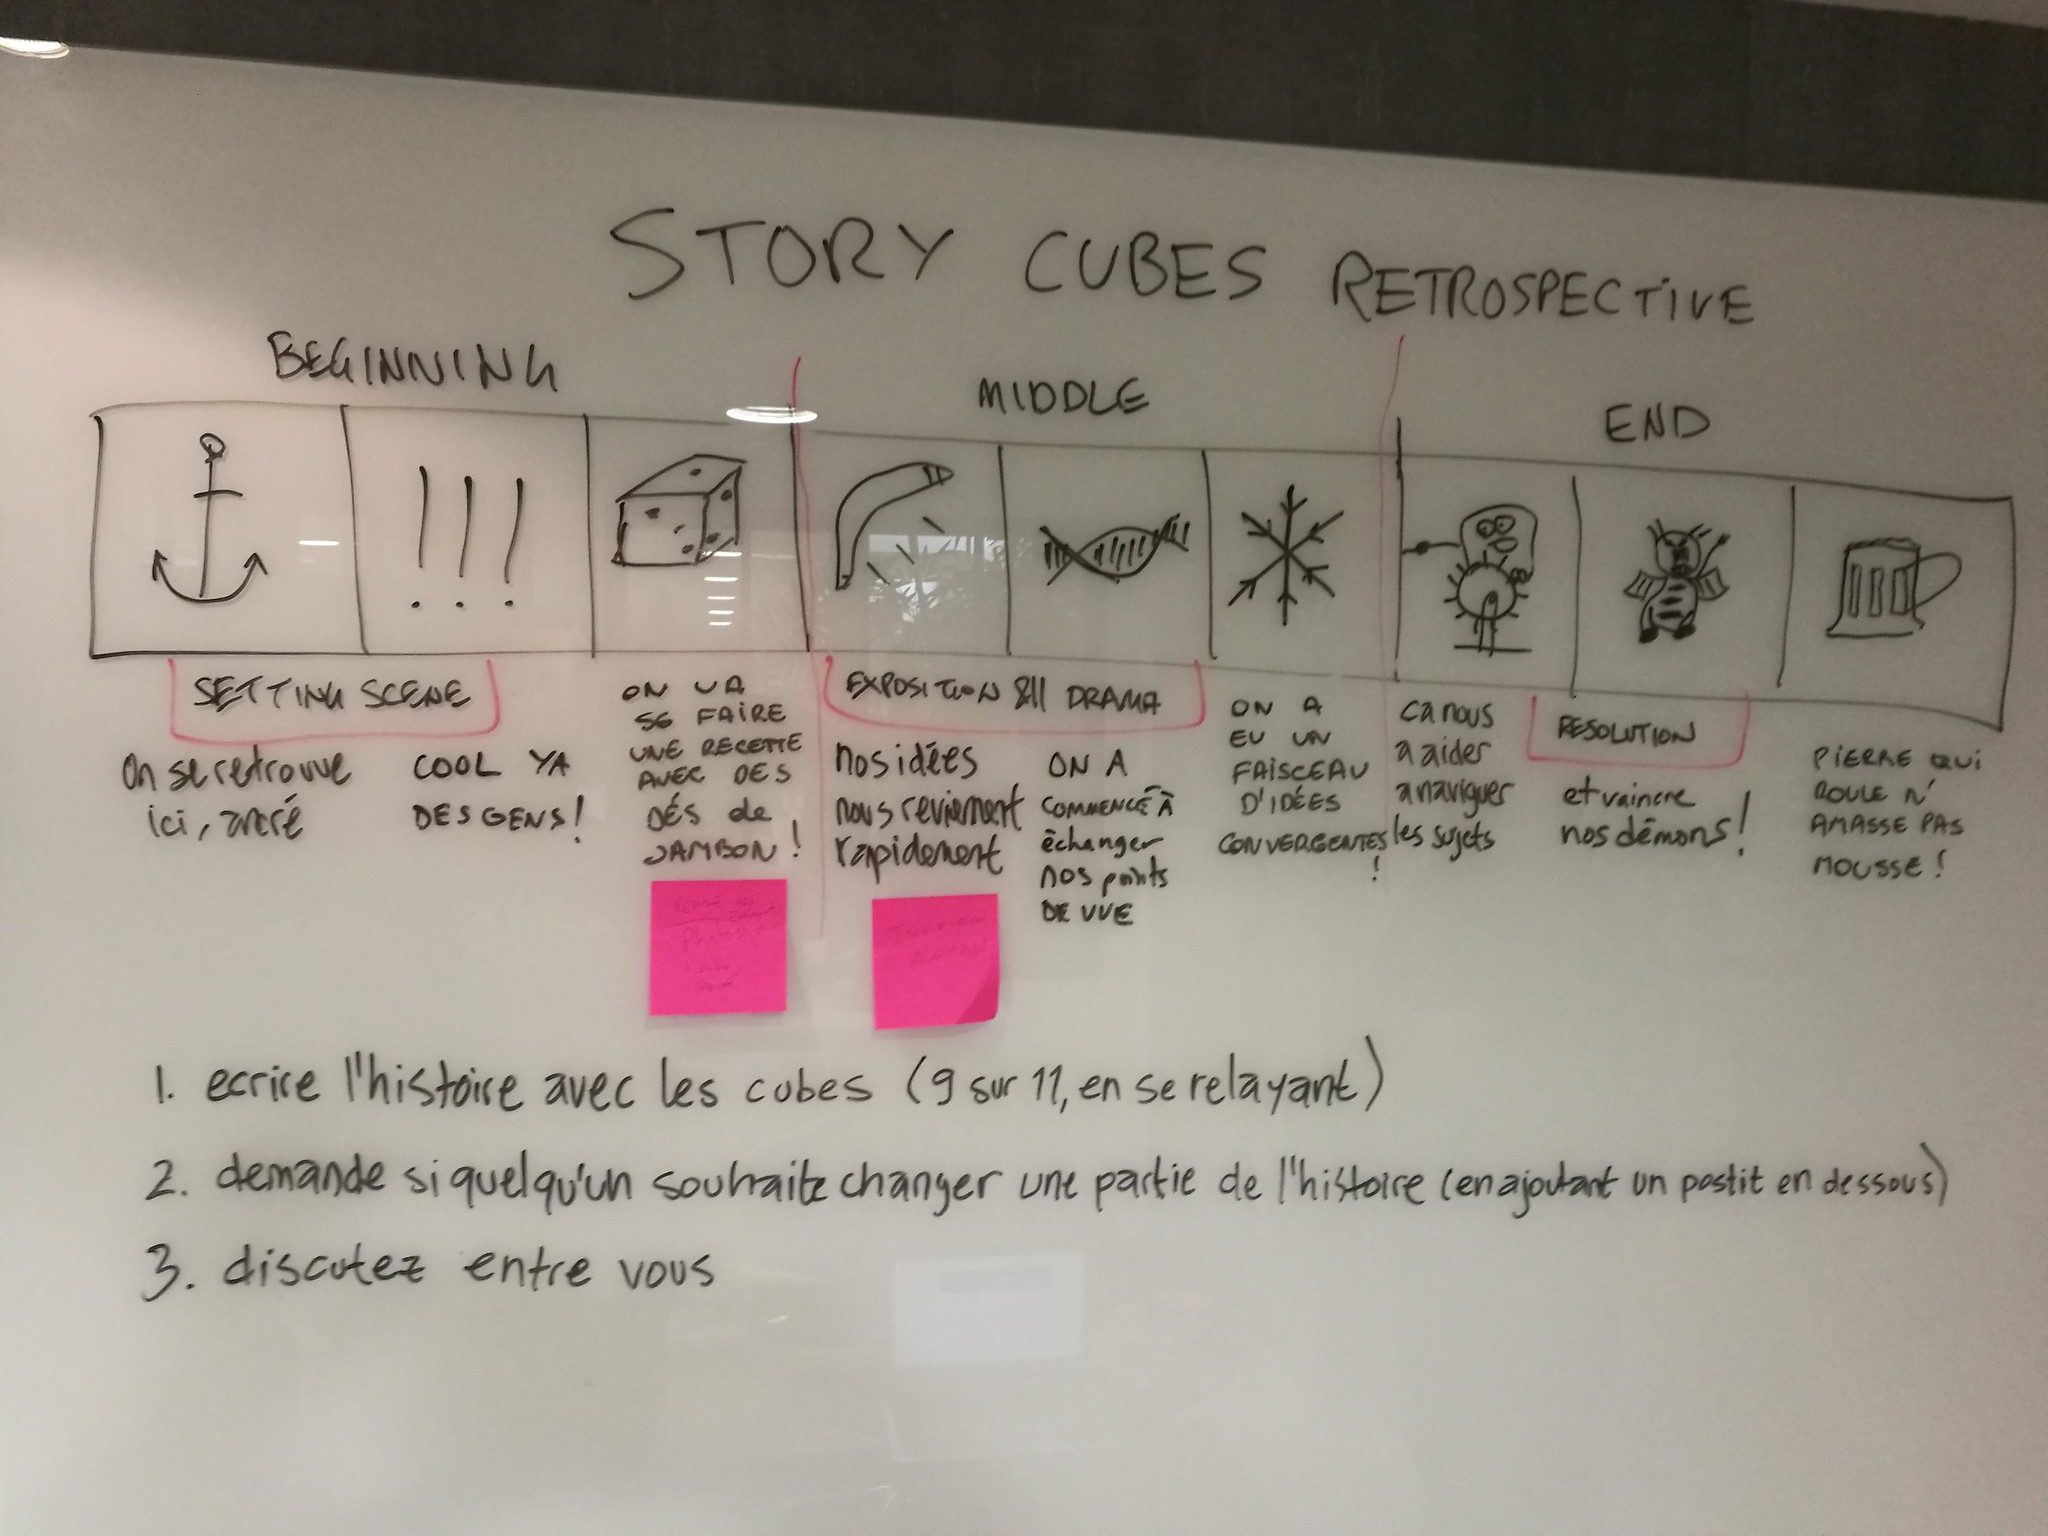 STORY CUBES RETROSPECTIVE
BEGINNING
MIDDLE
END
! ! !
SETTING SCENE
On se retrouve
ici, ancré
COOL YA
DES GENS!
ON VA
SE FAIRE
UNE RECETTE
AVEC DES
DÉS de
JAMBON!
EXPOSITION &11 DRAMA
nos idées
nous reviennent
rapidement
ON A
COMMENCÉ À
échanger
nos points
DE VUE
ON A
EU UN
FAISCEAU
D'IDÉES
CONVERGENTES
!
ca nous
a aider
a naviguer
les sujets
RESOLUTION
et vaincre
nos démons!
PIERRE QUI
ROULE N'
AMASSE PAS
MOUSSE!
1. ecrire l'histoire avec les cubes (9 sur 11, en se relayant)
2. demande si quelqu'un souhaite changer une partie de l'histoire (en ajoutant un postit en dessous)
3. discutez entre vous